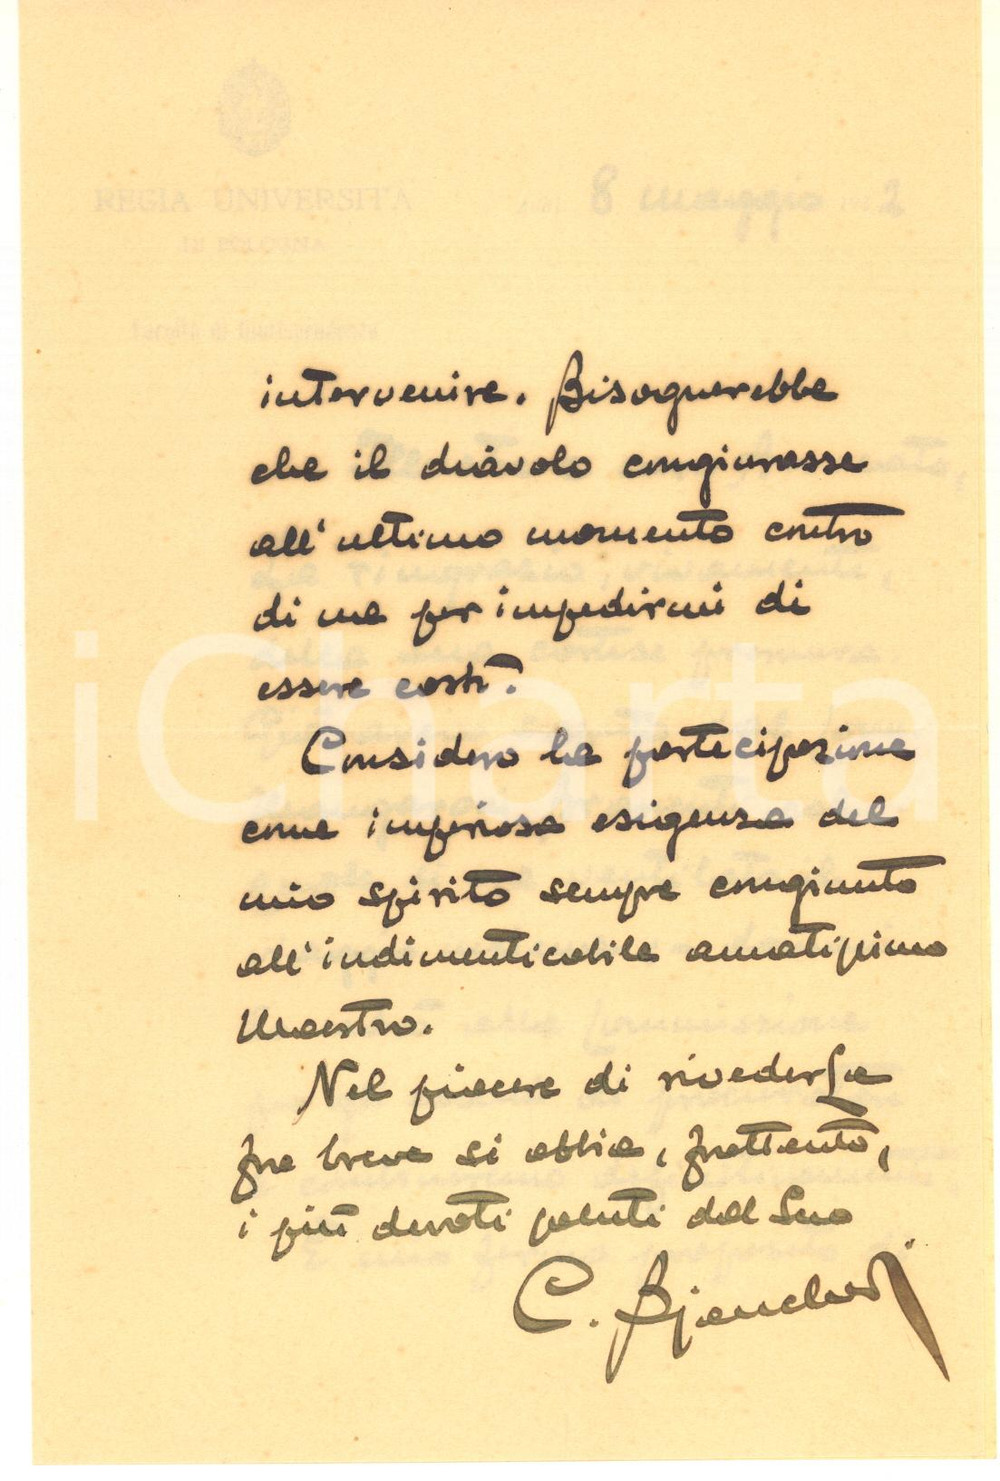 REGIA UNIVERSITÀ
DI BOLOGNA
8 maggio 1932
Facoltà di Giurisprudenza
intervenire. Bisognerebbe
che il diavolo congiurasse
all'ultimo momento contro
di me per impedirmi di
essere costì.
Considero la partecipazione
come imperiosa esigenza del
mio spirito sempre congiunto
all'indimenticabile amatissimo
Maestro.
Nel piacere di rivederLa
fra breve si abbia, frattanto,
i più devoti saluti dal Suo
C. Bianchedi
iCharta